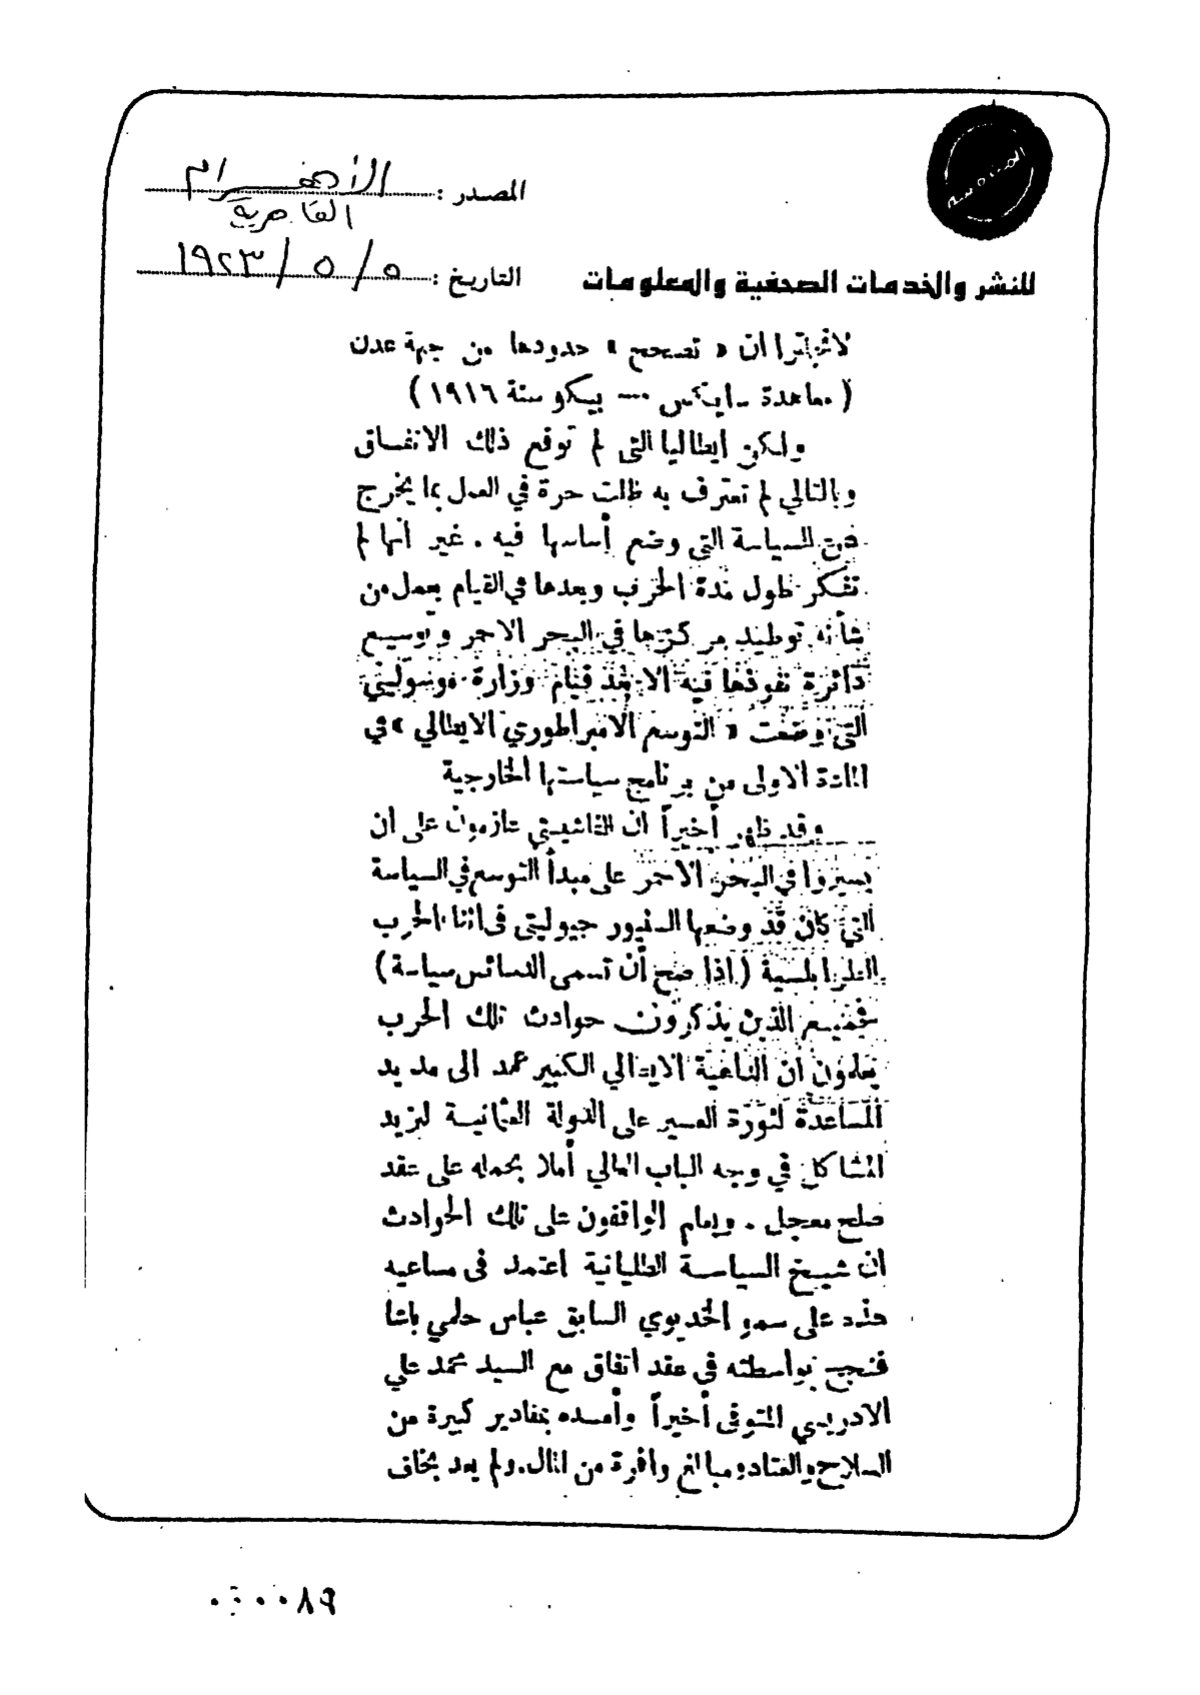 المصدر : الأهرام
القاهرية
التاريخ : ٥ / ٥ / ١٩٢٣
للنشر والخدمات الصحفية والمعلومات
لانجلترا ان « تصحح » حدودها من جهة عدن
( معاهدة سايكس — بيكو سنة ١٩١٦ )
ولكن ايطاليا التى لم توقع ذلك الاتفاق
وبالتالي لم تعترف به ظلت حرة في العمل بما يخرج
عن السياسة التى وضع أساسها فيه . غير انها لم
تفكر طول مدة الحرب وبعدها في القيام بعمل من
شأنه توطيد مركزها في البحر الاحمر وتوسيع
دائرة نفوذها فيه الا بعد قيام وزارة موسوليني
التى وضعت « التوسع الامبراطوري الايطالي » في
المادة الاولى من برنامج سياستها الخارجية
وقد ظهر أخيراً ان الفاشيستي عازمون على ان
يسيروا في البحر الاحمر على مبدأ التوسع في السياسة
التي كان قد وضعها السنيور جيوليتى فى اثناء الحرب
الطرابلسية ( اذا صح أن تسمى الدسائس سياسة )
فجميع الذين يذكرون حوادث تلك الحرب
يعلمون ان الداهية الايطالي الكبير عمد الى مد يد
المساعدة لثورة العسير على الدولة العثمانية ليزيد
المشاكل في وجه الباب العالي أملا بحمله على عقد
صلح معجل . ويعلم الواقفون على تلك الحوادث
ان شيخ السياسة الطليانية اعتمد فى مساعيه
هذه على سمو الخديوي السابق عباس حلمي باشا
فنجح بواسطته في عقد اتفاق مع السيد محمد علي
الادريسي المتوفى أخيراً وأمده بمقادير كبيرة من
السلاح والعتاد ومبالغ وافرة من المال. ولم يعد بخاف
٨٩